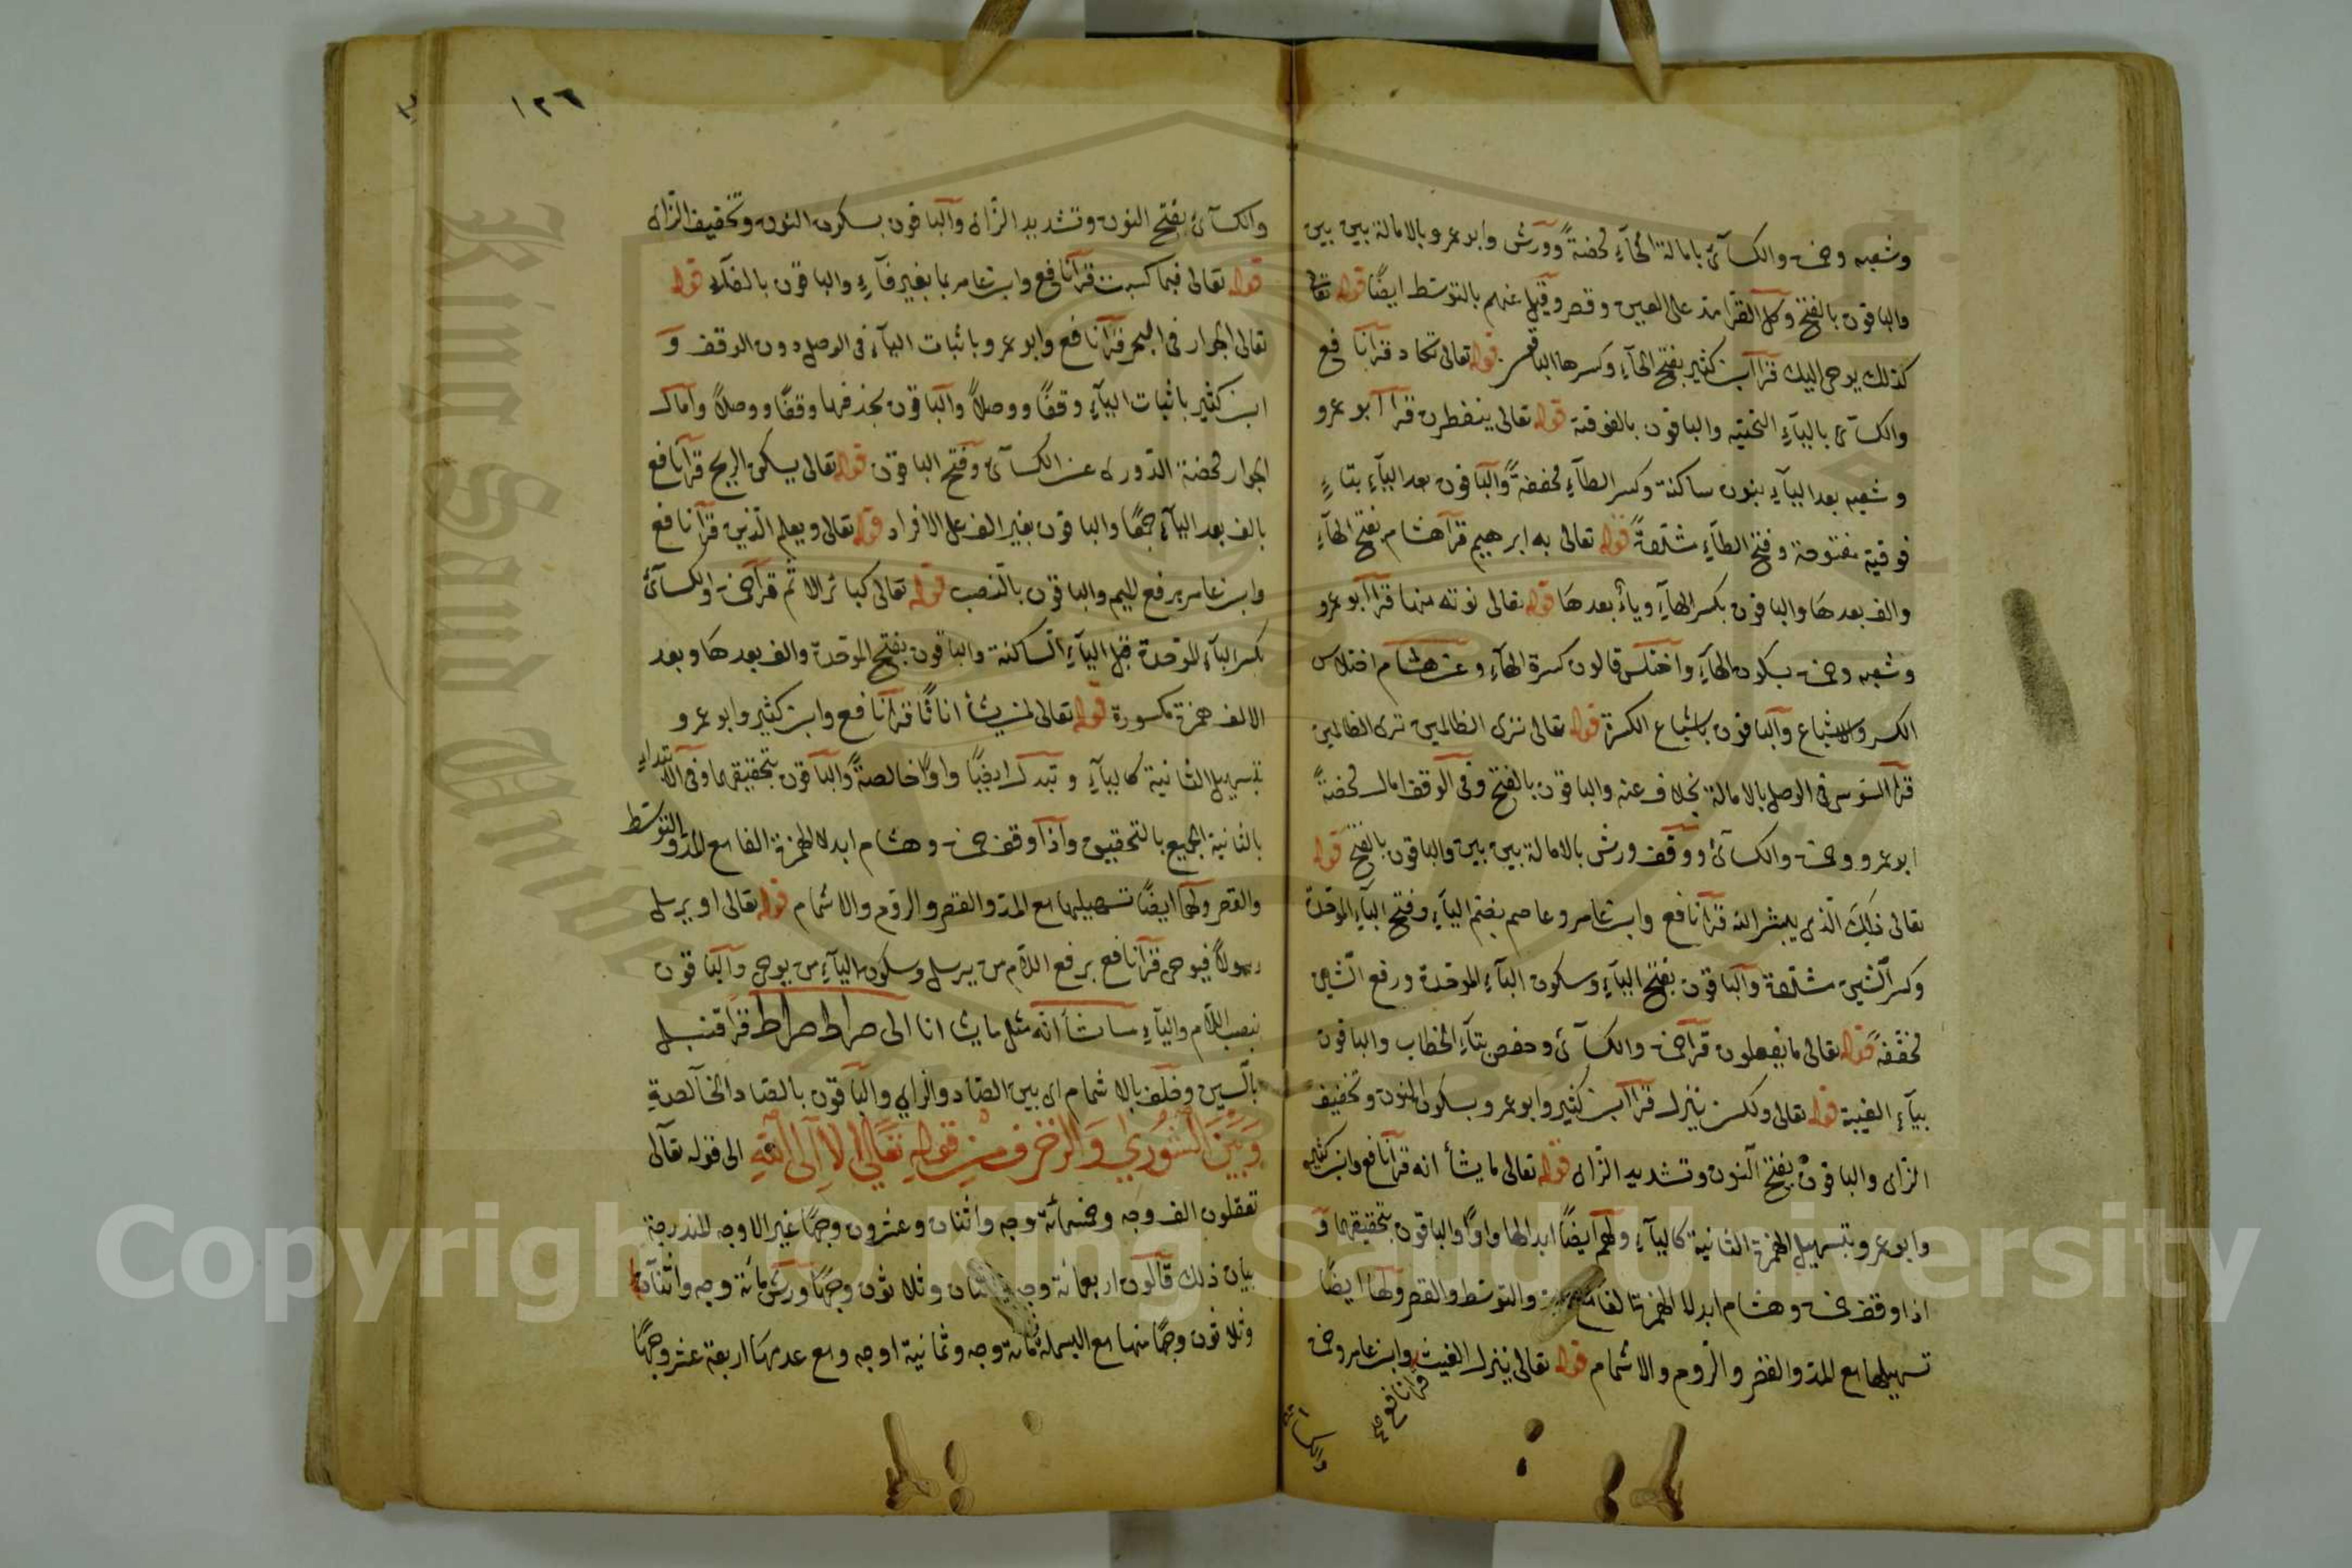 وشعبه وحمزة والكسآئ بامالة الحآءِ محضةً وورش وابو عمرو بالامالة بين بين
والباقون بالفتح وكل القرا مد على العين وقصر وقيل عنهم بالتوسط ايضًا قوله تعالى
كذلك يوحى اليك قرا ابن كثير بفتح الحآءِ وكسرها الباقون قوله تعالى تكاد قرآ نافع
والكسآئ باليآءِ التحتيه والباقون بالفوقية قوله تعالى ينفطرن قرا ابو عمرو
وشعبه بعد اليآءِ بنون ساكنة وكسر الطآءِ مخففةً والباقون بعد اليآءِ بتاءٍ
فوقية مفتوحة وفتح الطآءِ مشددةً قوله تعالى به ابرهيم قرآ هشام بفتح الهآءِ
والف بعدها والباقون بكسر الهآءِ ويآء بعدها قوله تعالى نوته منها قرا ابو عمرو
وشعبه وحمزة بسكون الهآءِ واختلس قالون كسرة الهآءِ وعن هشام اختلاس
الكسر والاشباع والباقون باشباع الكسرة قوله تعالى ترى الظالمين ترى الظالمين
قرآ السوسى فى الوصل بالامالة بخلاف عنه والباقون بالفتح وفى الوقف امال محضةً
ابو عمرو وحمزة والكسآئ ووقف ورش بالامالة بين بين والباقون بالفتح قوله
تعالى ذلك الذى يبشر الله قرآ نافع وابن عامر وعاصم بضم اليآءِ وفتح البآءِ الموحدة
وكسر الشين مشددة والباقون بفتح اليآءِ وسكون البآءِ الموحدة ورفع الشين
مخففةً قوله تعالى ما يفعلون قرآ حمزة والكسآئ وحفص بتآءِ الخطاب والباقون
بيآءِ الغيبة قوله تعالى ولكن ينزل قرا ابن كثير وابو عمرو بسكون النون وتخفيف
الزاى والباقون بفتح النون وتشديد الزاى قوله تعالى ما يشأ انه قرآ نافع وابن كثير
وابو عمرو بتسهيل الهمزة الثانية كاليآءِ ولهم ايضًا ابدالها واوًا والباقون بتحقيقهما و
اذا وقف حمزة وهشام ابدلا الهمزة الفا والتوسط والقصر ولهما ايضًا
تسهيلها مع المد والقصر والروم والاشمام قوله تعالى ينزل الغيث وابن عامر وحمزة
قرا نافع صح
والكسآئ
١٢٦
والكسآئ بفتح النون وتشديد الزاى والباقون بسكون النون وتخفيف الزاى
قوله تعالى فبما كسبت قرآ نافع وابن عامر بما بغير فآءٍ والباقون بالفآءِ قوله
تعالى الجوار فى البحر قرآ نافع وابو عمرو باثبات اليآءِ فى الوصل دون الوقف و
ابن كثير باثبات اليآءِ وقفًا ووصلاً والباقون بحذفها وقفًا ووصلاً وامال
الجوار محضة الدورى عن الكسآئ وفتح الباقون قوله تعالى يسكن الريح قرآ نافع
بالف بعد اليآءِ جمعًا والباقون بغير الف على الافراد قوله تعالى ويعلم الذين قرآ نافع
وابن عامر برفع الميم والباقون بالنصب قوله تعالى كبائر الاثم قرآ حمزة والكسآئ
بكسر البآءِ الموحدة قبل اليآءِ الساكنة والباقون بفتح الموحدة والف بعدها وبعد
الالف همزة مكسورة قوله تعالى لمن يشآ اناثًا قرآ نافع وابن كثير وابو عمرو
بتسهيل الثانية كاليآءِ وتبدل ايضًا واوًا خالصةً والباقون بتحقيقهما وفى الابتداءِ
بالثانية الجميع بالتحقيق واذا وقف حمزة وهشام ابدلا الهمزة الفا مع المد والتوسط
والقصر ولهما ايضًا تسهيلها مع المد والقصر والروم والاشمام قوله تعالى او يرسل
رسولاً فيوحى قرآ نافع برفع اللام من يرسل وسكون اليآءِ من يوحى والباقون
بنصب اللام واليآءِ مآ يشآ انه مثل ما يشا اناثا الى صراط صراط قرآ قنبل
بالسين وخلف بالاشمام اى بين الصاد والزاى والباقون بالصاد الخالصةِ
وَبَيْنَ الشُّورى وَالزخرف مِن قوله تَعَالى اَلا اِلى اللهِ الى قوله تعالى
تعقلون الف وجه وخمسمائة وجه واثنان وعشرون وجهًا غير الاوجه المندرجة
بيان ذلك قالون اربعمائة وجه واثنان وثلاثون وجهًا ورش مائة وجه واثنان
وثلاثون وجهًا منها مع البسملة مائة وجه وثمانية اوجه ومع عدمها اربعة عشر وجهًا
Copyright © King Saud University
King Saud University